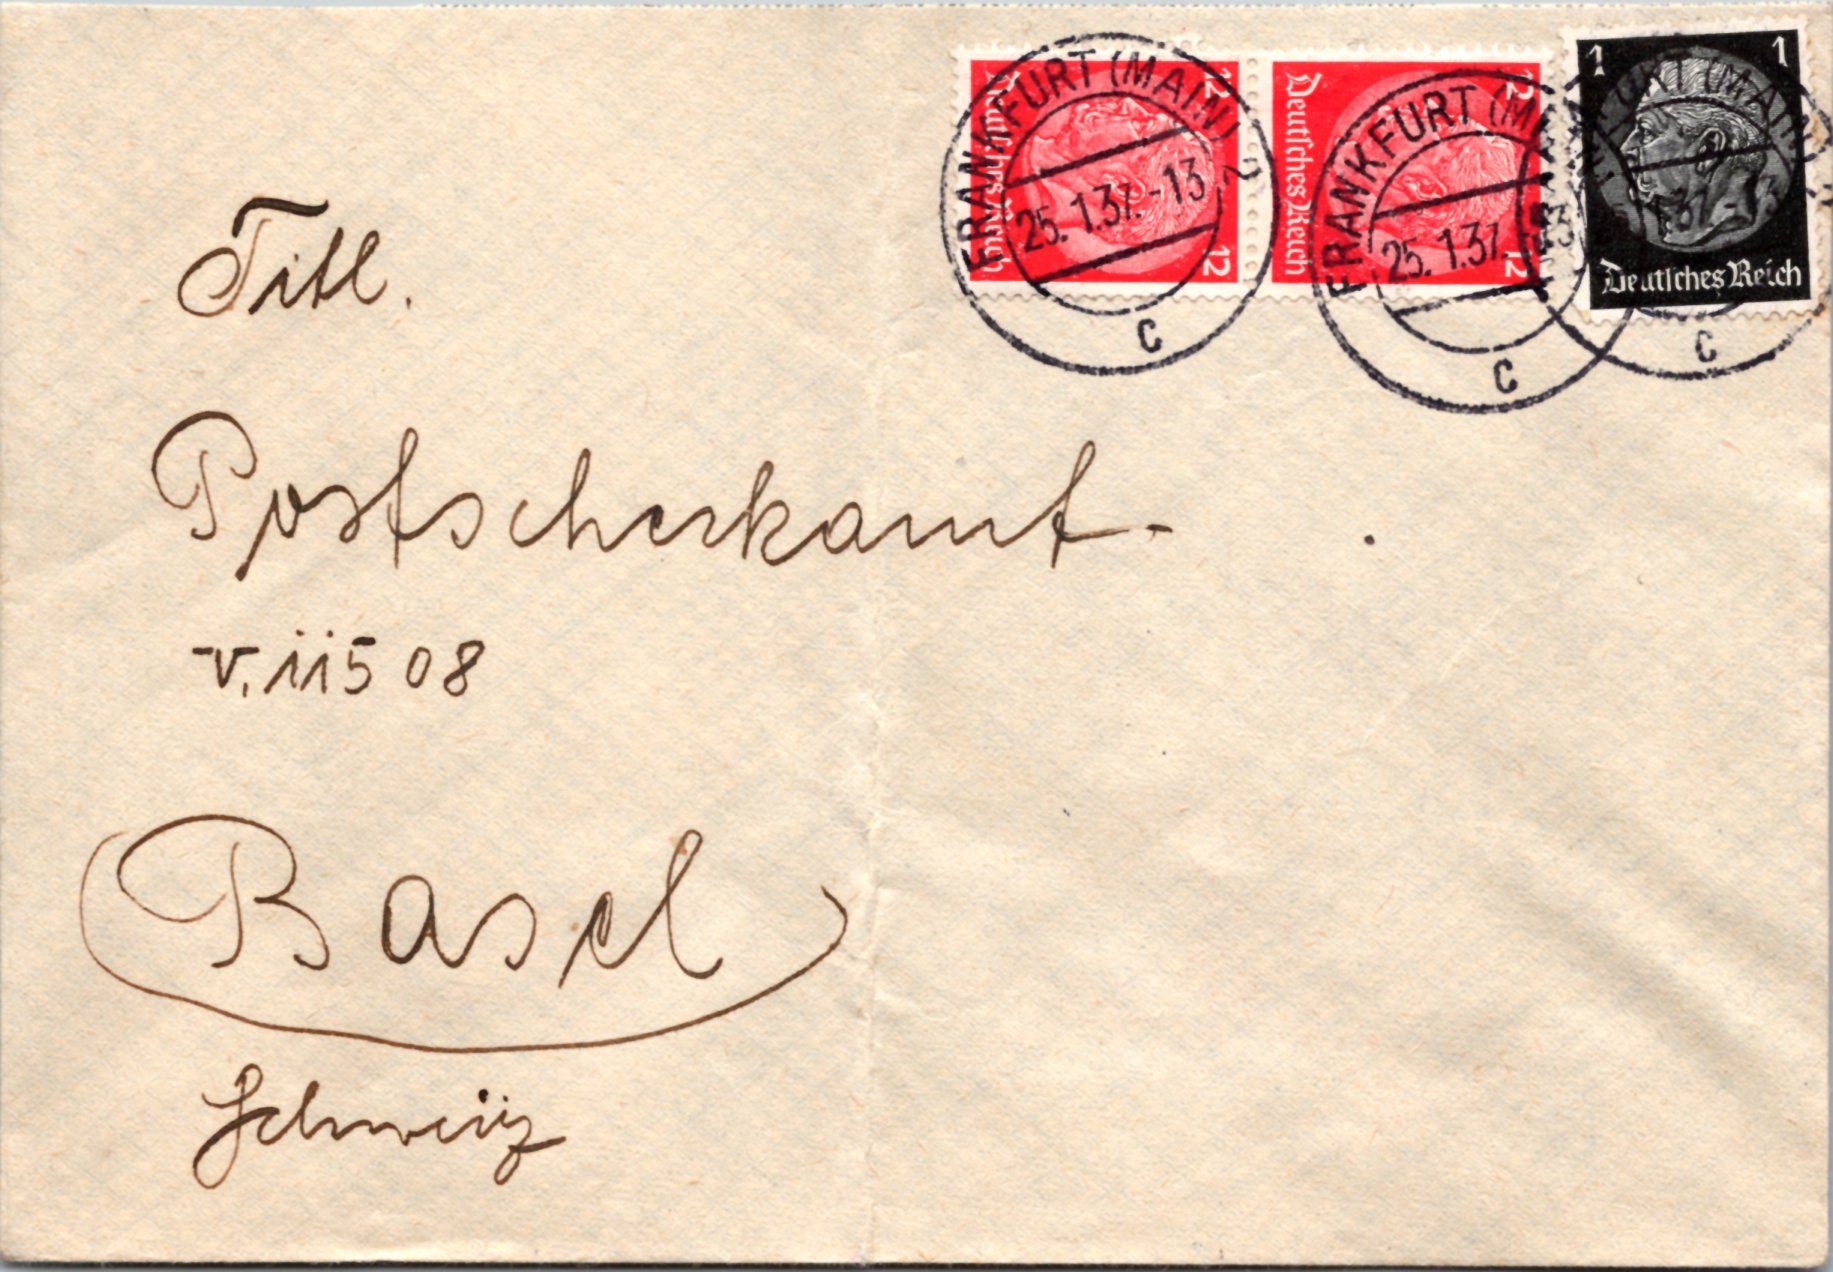 12 12
Deutsches Reich
12 12
Deutsches Reich
1 1
Deutsches Reich
FRANKFURT (MAIN) 2
25. 1.37.-13
c
FRANKFURT (M
25. 1.37.-13
c
FURT (MAIN)
1.37.-13
c
Titl.
Postscherkamt.
V. 11508
Basel
Schweiz